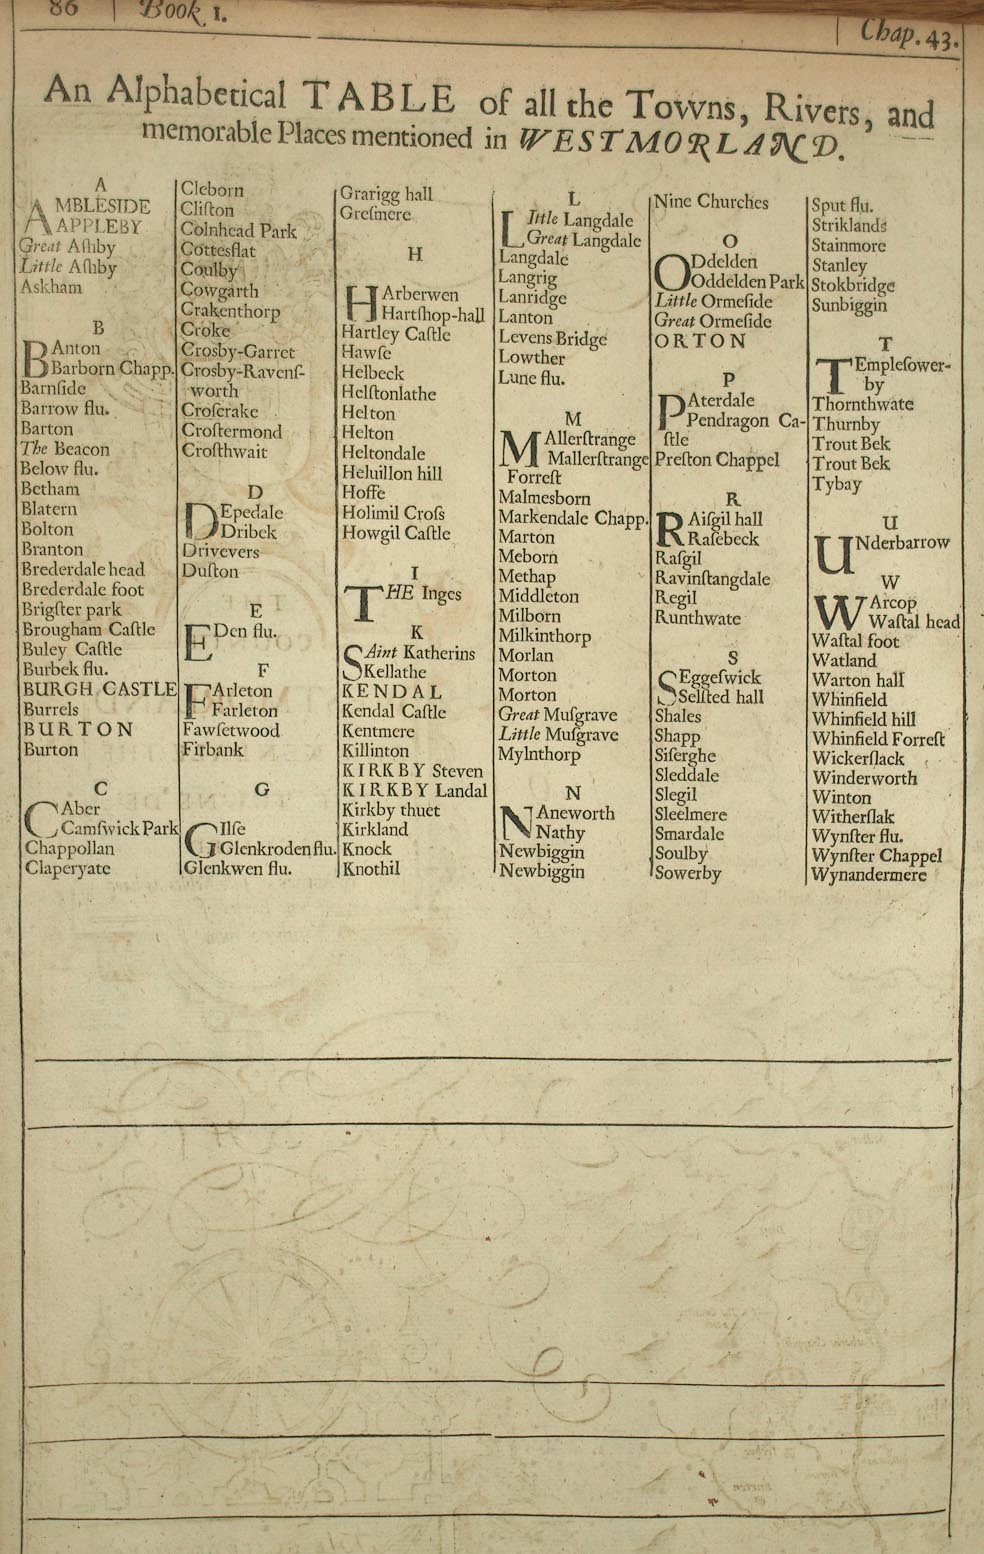 86 Book 1.
Chap. 43.
An Alphabetical TABLE of all the Towns, Rivers, and
memorable Places mentioned in WESTMORLAND.
A
AMBLESIDE
APPLEBY
Great Aſhby
Little Aſhby
Askham
B
BAnton
Barborn Chapp.
Barnſide
Barrow flu.
Barton
The Beacon
Below flu.
Betham
Blatern
Bolton
Branton
Brederdale head
Brederdale foot
Brigſter park
Brougham Caſtle
Buley Caſtle
Burbek flu.
BURGH CASTLE
Burrels
BURTON
Burton
C
CAber
Camſwick Park
Chappollan
Claperyate
Cleborn
Clifton
Colnhead Park
Cottesflat
Coulby
Cowgarth
Crakenthorp
Croke
Crosby-Garret
Crosby-Ravenſ-
worth
Croſcrake
Croſtermond
Croſthwait
D
DEpedale
Dribek
Drivevers
Dufton
E
EDen flu.
F
FArleton
Farleton
Fawſetwood
Firbank
G
GIlſe
Glenkroden flu.
Glenkwen flu.
Grarigg hall
Greſmere
H
HArberwen
Hartſhop-hall
Hartley Caſtle
Hawſe
Helbeck
Helſtonlathe
Helton
Helton
Heltondale
Heluillon hill
Hoffe
Holimil Croſs
Howgil Caſtle
I
THE Inges
K
SAint Katherins
Kellathe
KENDAL
Kendal Caſtle
Kentmere
Killinton
KIRKBY Steven
KIRKBY Landal
Kirkby thuet
Kirkland
Knock
Knothil
L
LIttle Langdale
Great Langdale
Langdale
Langrig
Lanridge
Lanton
Levens Bridge
Lowther
Lune flu.
M
MAllerſtrange
Mallerſtrange
Forreſt
Malmesborn
Markendale Chapp.
Marton
Meborn
Methap
Middleton
Milborn
Milkinthorp
Morlan
Morton
Morton
Great Muſgrave
Little Muſgrave
Mylnthorp
N
NAneworth
Nathy
Newbiggin
Newbiggin
Nine Churches
O
ODdelden
Oddelden Park
Little Ormeſide
Great Ormeſide
ORTON
P
PAterdale
Pendragon Ca-
ſtle
Preſton Chappel
R
RAiſgil hall
Raſebeck
Raſgil
Ravinſtangdale
Regil
Runthwate
S
SEggeſwick
Selſted hall
Shales
Shapp
Siſerghe
Sleddale
Slegil
Sleelmere
Smardale
Soulby
Sowerby
Sput flu.
Striklands
Stainmore
Stanley
Stokbridge
Sunbiggin
T
TEmpleſower-
by
Thornthwate
Thurnby
Trout Bek
Trout Bek
Tybay
U
UNderbarrow
W
WArcop
Waſtal head
Waſtal foot
Watland
Warton hall
Whinfield
Whinfield hill
Whinfield Forreſt
Wickerſlack
Winderworth
Winton
Witherſlak
Wynſter flu.
Wynſter Chappel
Wynandermere